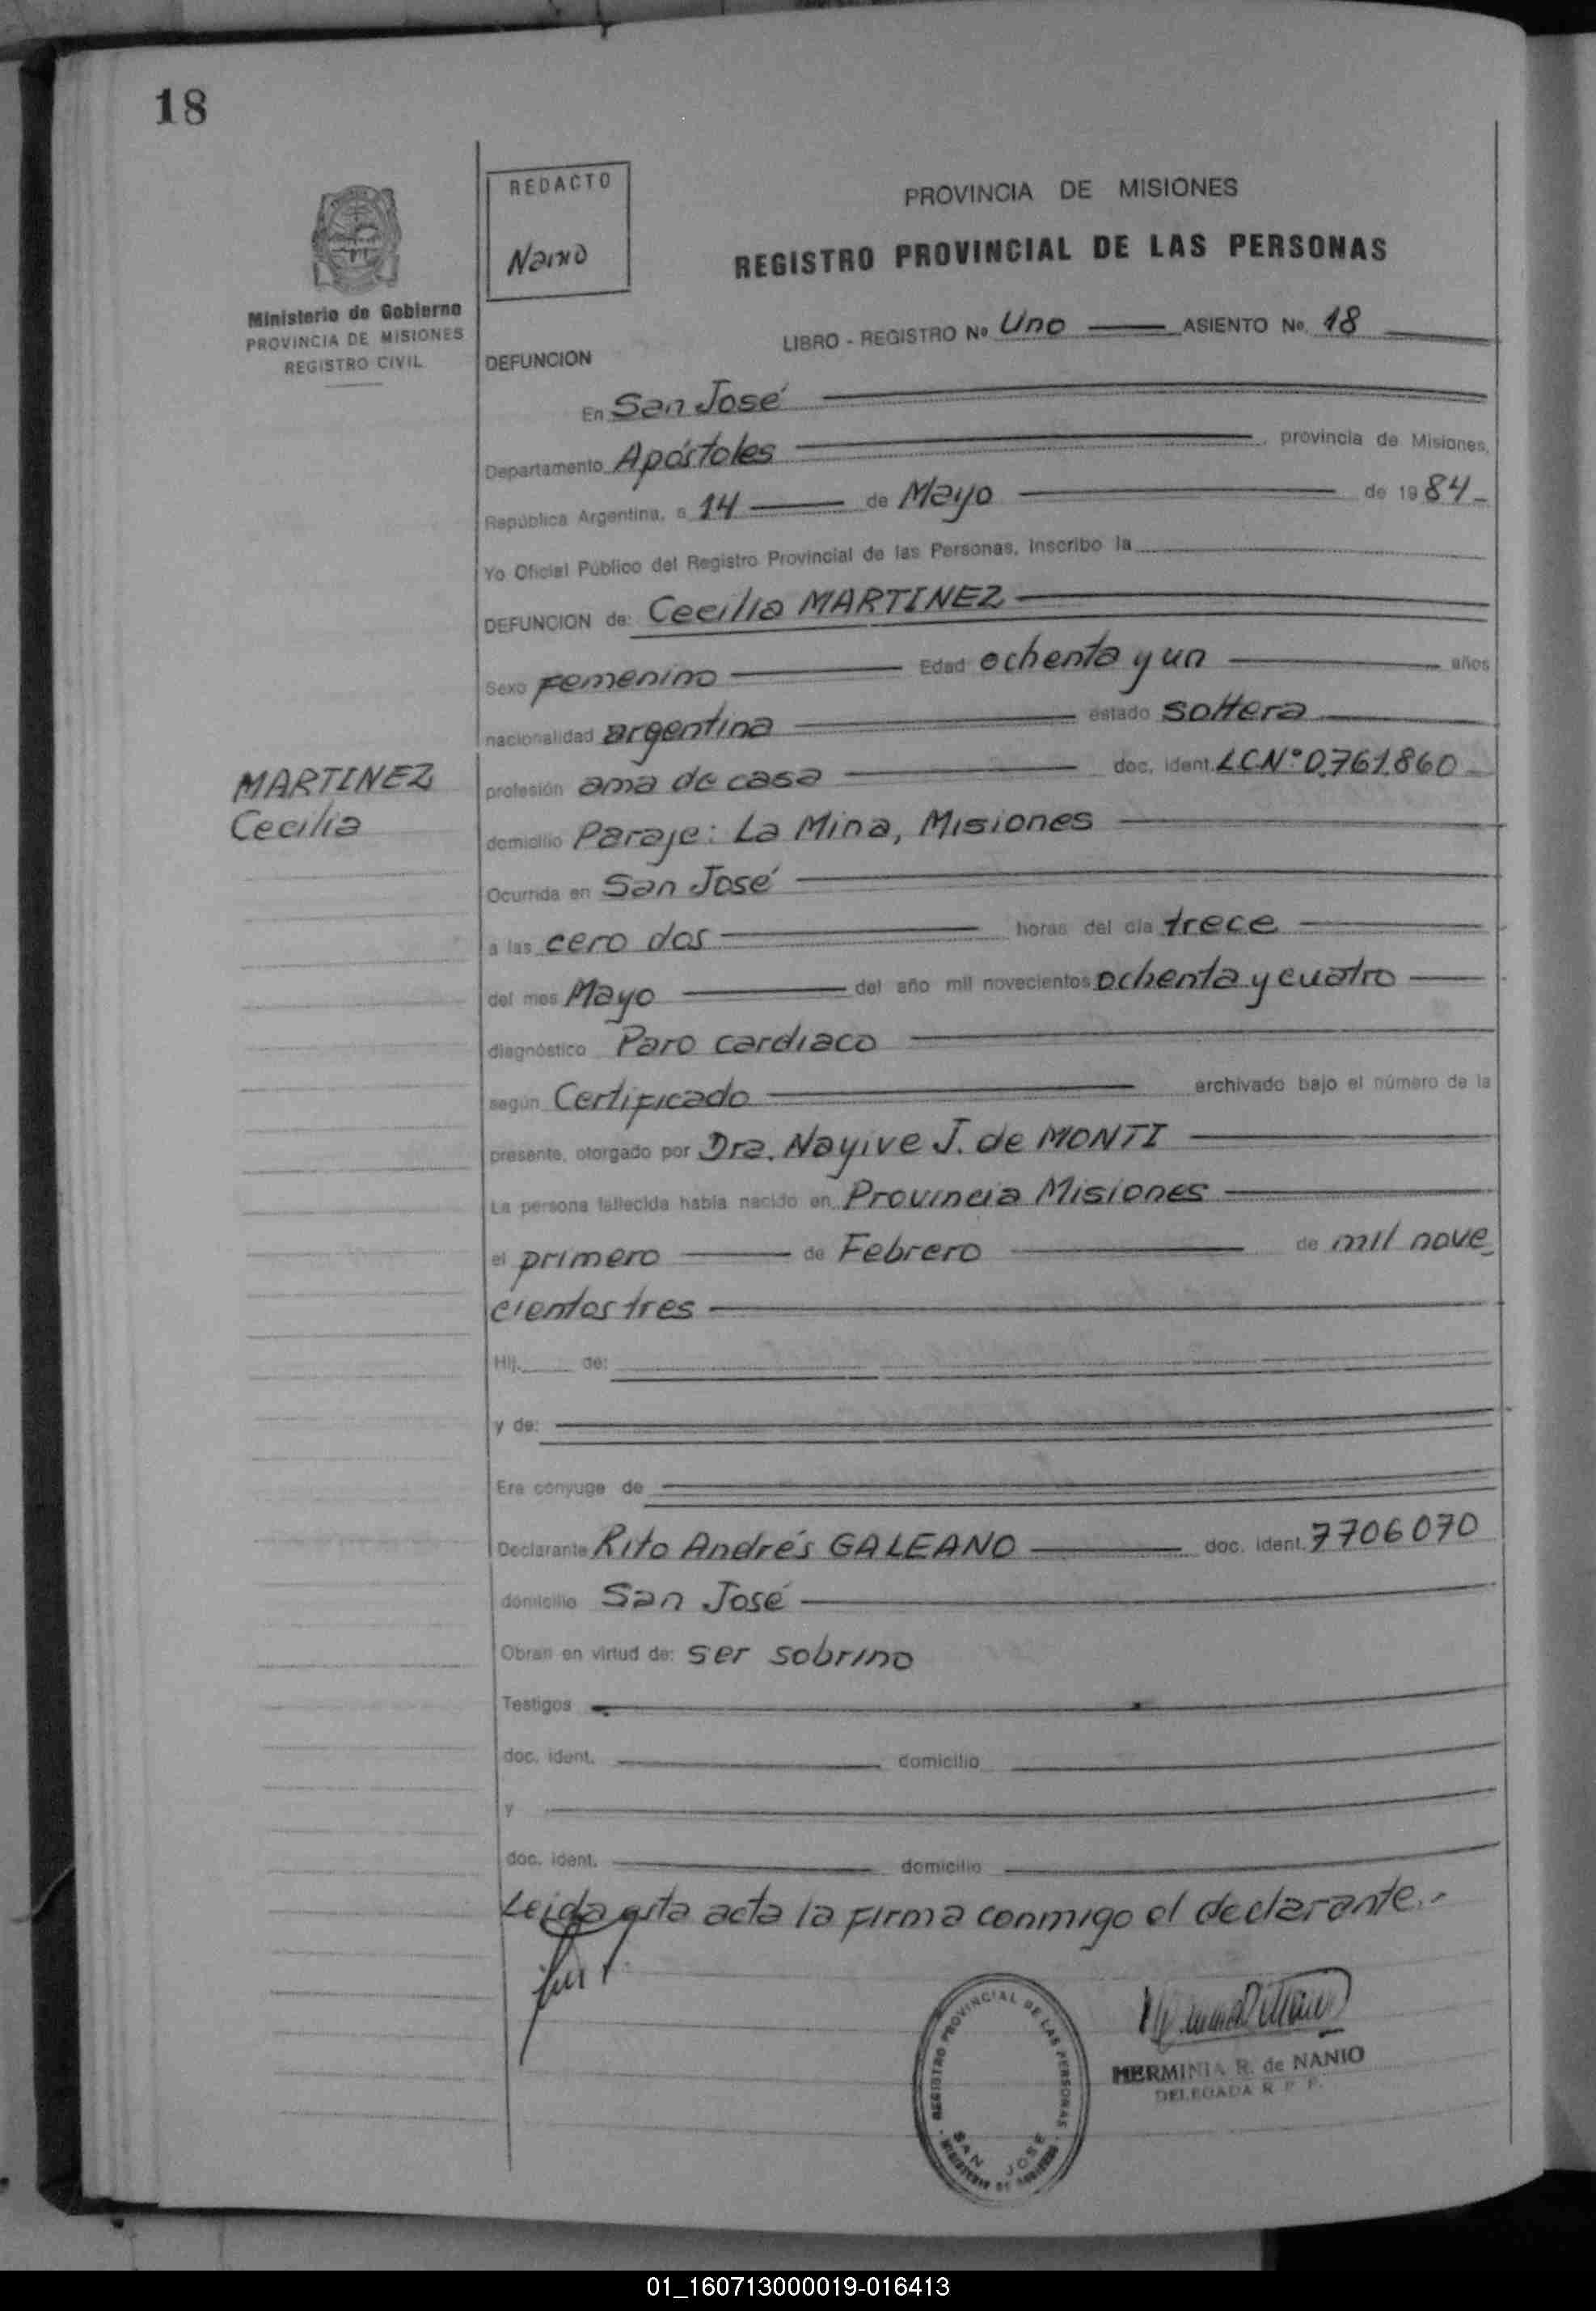 18
REDACTO
Nanio
Ministerio de Gobierno
PROVINCIA DE MISIONES
REGISTRO CIVIL
PROVINCIA DE MISIONES
REGISTRO PROVINCIAL DE LAS PERSONAS
LIBRO - REGISTRO Nº Uno ASIENTO Nº 18
DEFUNCION
En San José
Departamento Apóstoles provincia de Misiones,
República Argentina, a 14 de Mayo de 1984
Yo Oficial Público del Registro Provincial de las Personas, inscribo la
DEFUNCION de: Cecilia MARTINEZ
Sexo Femenino Edad ochenta y un años
nacionalidad argentina estado soltera
MARTINEZ
Cecilia
profesión ama de casa doc. ident. LC.Nº0.761.860
domicilio Paraje: La Mina, Misiones
Ocurrida en San José
a las cero dos horas del día trece
del mes Mayo del año mil novecientos ochenta y cuatro
diagnóstico Paro cardiaco
según Certificado archivado bajo el número de la
presente, otorgado por Dra. Nayive J. de MONTI
La persona fallecida había nacido en Provincia Misiones
el primero de Febrero de mil nove
cientos tres
Hij. de:
y de:
Era cónyuge de
Declarante Rito Andrés GALEANO doc. ident. 7706070
domicilio San José
Obran en virtud de: ser sobrino
Testigos
doc. ident. domicilio
y
doc. ident. domicilio
Leida esta acta la firma conmigo el declarante.-
REGISTRO PROVINCIAL DE LAS PERSONAS
SAN JOSE
MINISTERIO DE GOBIERNO
HERMINIA R. de NANIO
DELEGADA R P P.
01_160713000019-016413